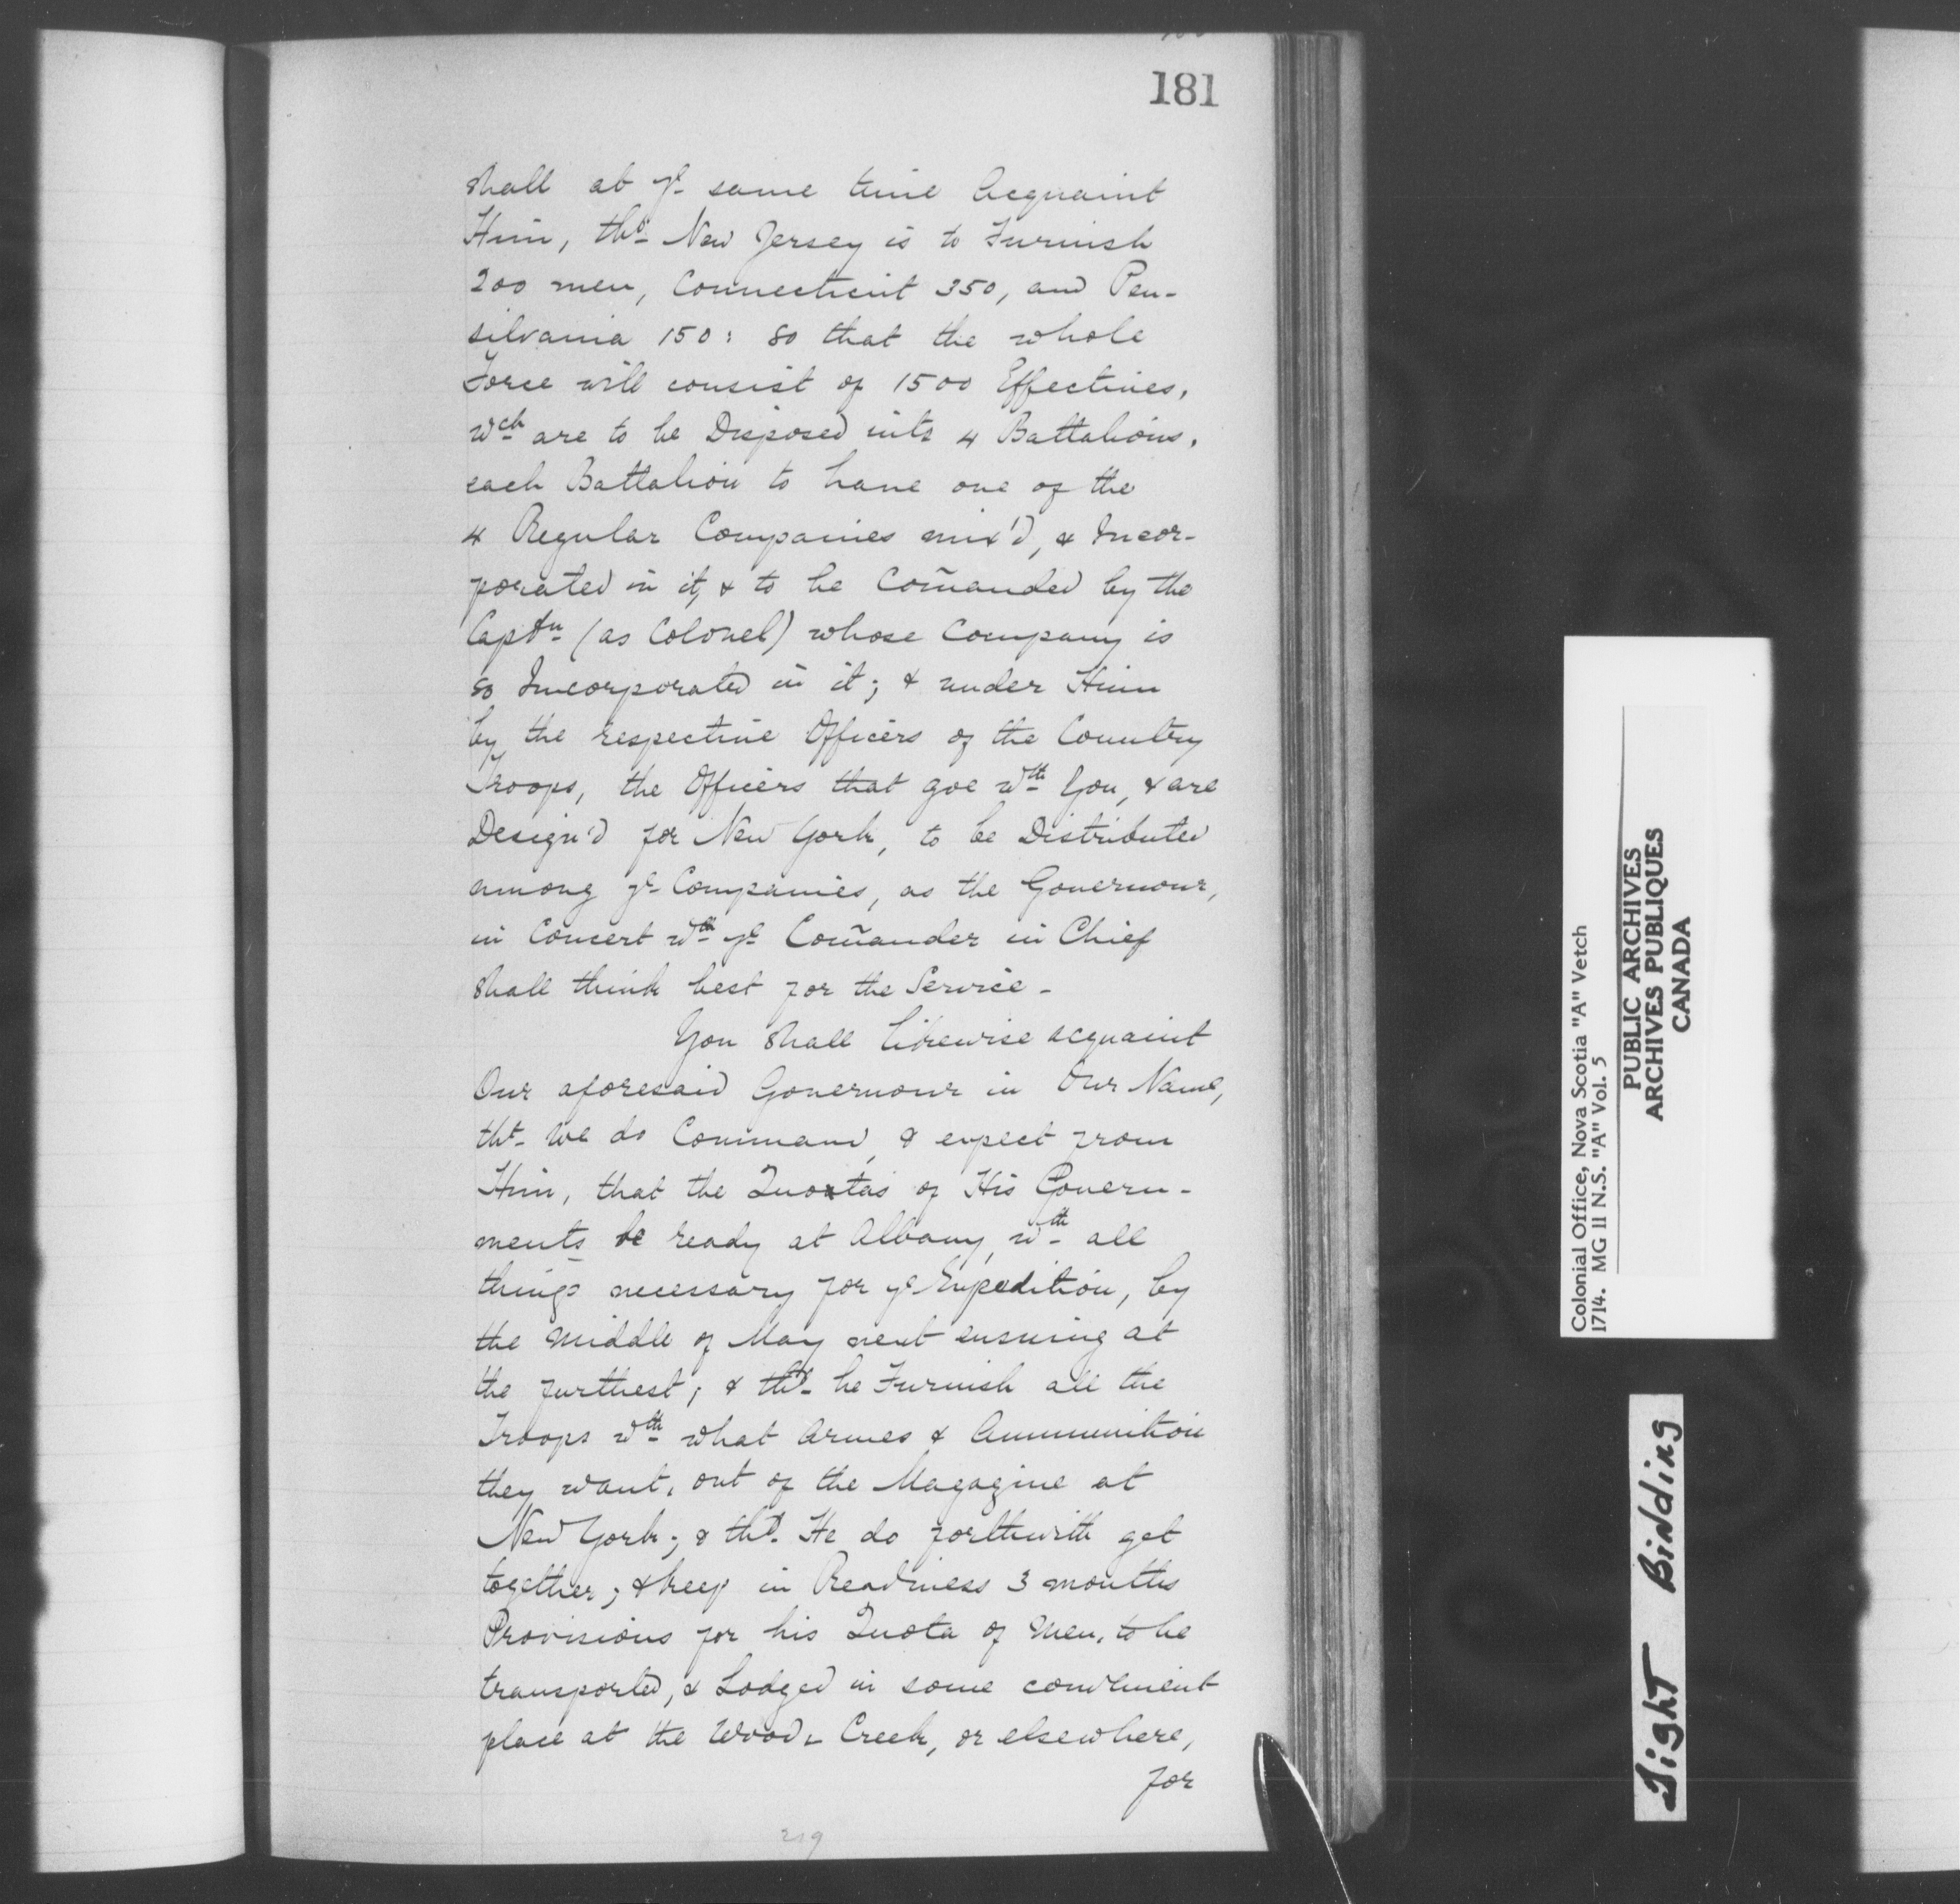 181
shall at ye same time Acquaint
Him, tht New Jersey is to Furnish
200 men, Connecticut 350, and Pen-
silvania 150: so that the whole
Force will consist of 1500 Effectives,
wch are to be Disposed into 4 Battalions,
each Battalion to have one of the
4 Regular Companies mix'd, & Incor-
porated in it, & to be Com̃anded by the
Captn (as Colonel) whose Company is
so Incorporated in it; & under Him
by the respective Officers of the Country
Troops, the Officers that goe wth You, & are
Design'd for New York, to be Distributed
among ye Companies, as the Governour,
in Concert wth ye Com̃ander in Chief
shall think best for the Service -
You shall likewise acquaint
Our aforesaid Governour in Our Name,
tht we do Command, & expect from
Him, that the Quotas of His Govern-
ments be ready at Albany, wth all
things necessary for ye Expedition, by
the middle of May next ensuing at
the furthest; & tht he Furnish all the
Troops wth what Armes & Ammunition
they want, out of the Magazine at
New York; & tht He do forthwith get
together, & keep in Readiness 3 months
Provisions for his Quota of Men, to be
transported, & Lodged in some convenient
place at the Wood-Creek, or elsewhere,
for
219
Colonial Office, Nova Scotia "A" Vetch
1714. MG 11 N.S. "A" Vol. 5
PUBLIC ARCHIVES
ARCHIVES PUBLIQUES
CANADA
Tight Binding